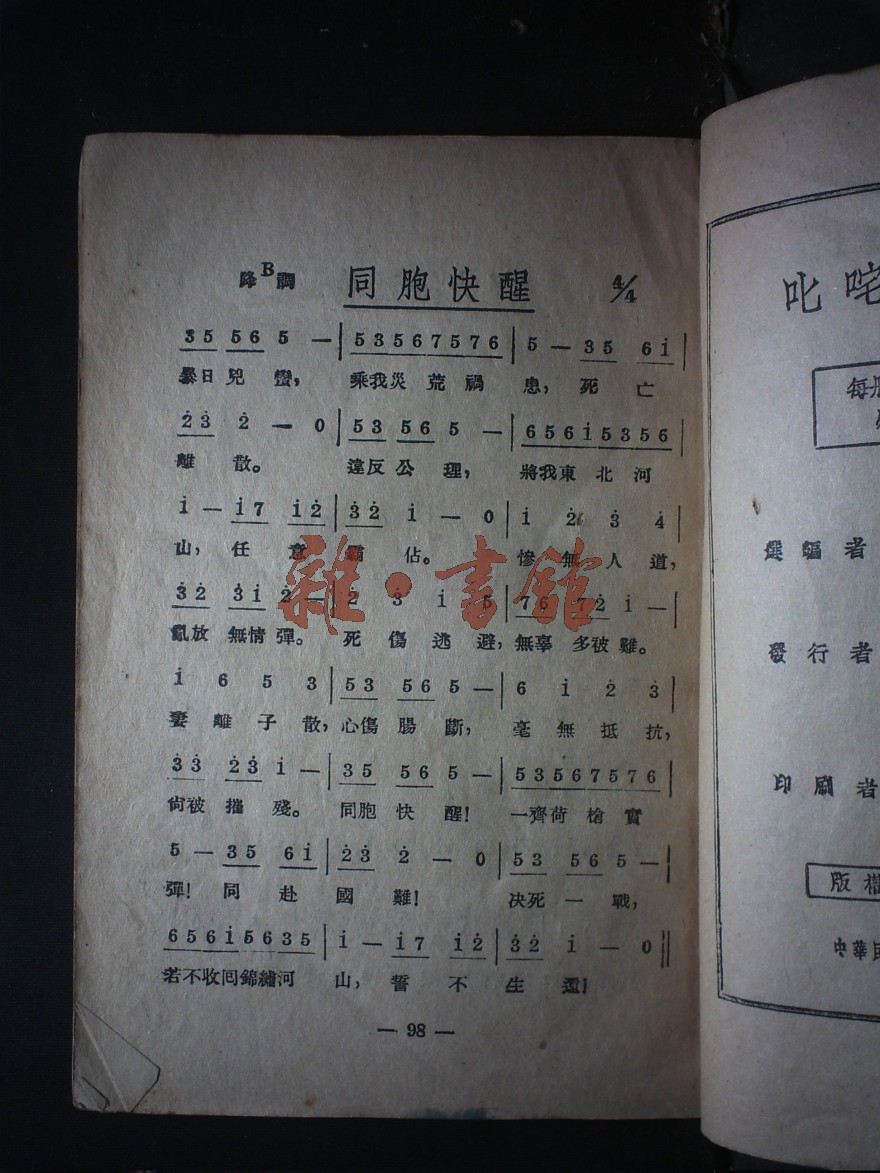 降B調 同胞快醒 4/4
3 5 5 6 5 — | 5 3 5 6 7 5 7 6 | 5 — 3 5 6 i̇ |
暴日兇蠻, 乘我災荒禍患, 死亡
2̇ 3̇ 2̇ — 0 | 5 3 5 6 5 — | 6 5 6 i̇ 5 3 5 6 |
離散。 違反公理, 將我東北河
i̇ — i̇ 7 i̇ 2̇ | 3̇ 2̇ i̇ — 0 | i̇ 2̇ 3̇ 4̇ |
山, 任意霸佔。 慘無人道,
3̇ 2̇ 3̇ i̇ 2̇ — | 2̇ 3̇ i̇ 5 | 7 6 7 2̇ i̇ — |
亂放無情彈。 死傷逃避, 無辜多被難。
i̇ 6 5 3 | 5 3 5 6 5 — | 6 i̇ 2̇ 3̇ |
妻離子散, 心傷腸斷, 毫無抵抗,
3̇ 3̇ 2̇ 3̇ i̇ — | 3 5 5 6 5 — | 5 3 5 6 7 5 7 6 |
尙被摧殘。 同胞快醒! 一齊荷槍實
5 — 3 5 6 i̇ | 2̇ 3̇ 2̇ — 0 | 5 3 5 6 5 — |
彈! 同赴國難! 决死一戰,
6 5 6 i̇ 5 6 3 5 | i̇ — i̇ 7 i̇ 2̇ | 3̇ 2̇ i̇ — 0 ||
若不收囘錦繡河山, 誓不生還!
— 98 —
雜·書館
叱咤
每册
選編者
發行者
印刷者
版權
中華民